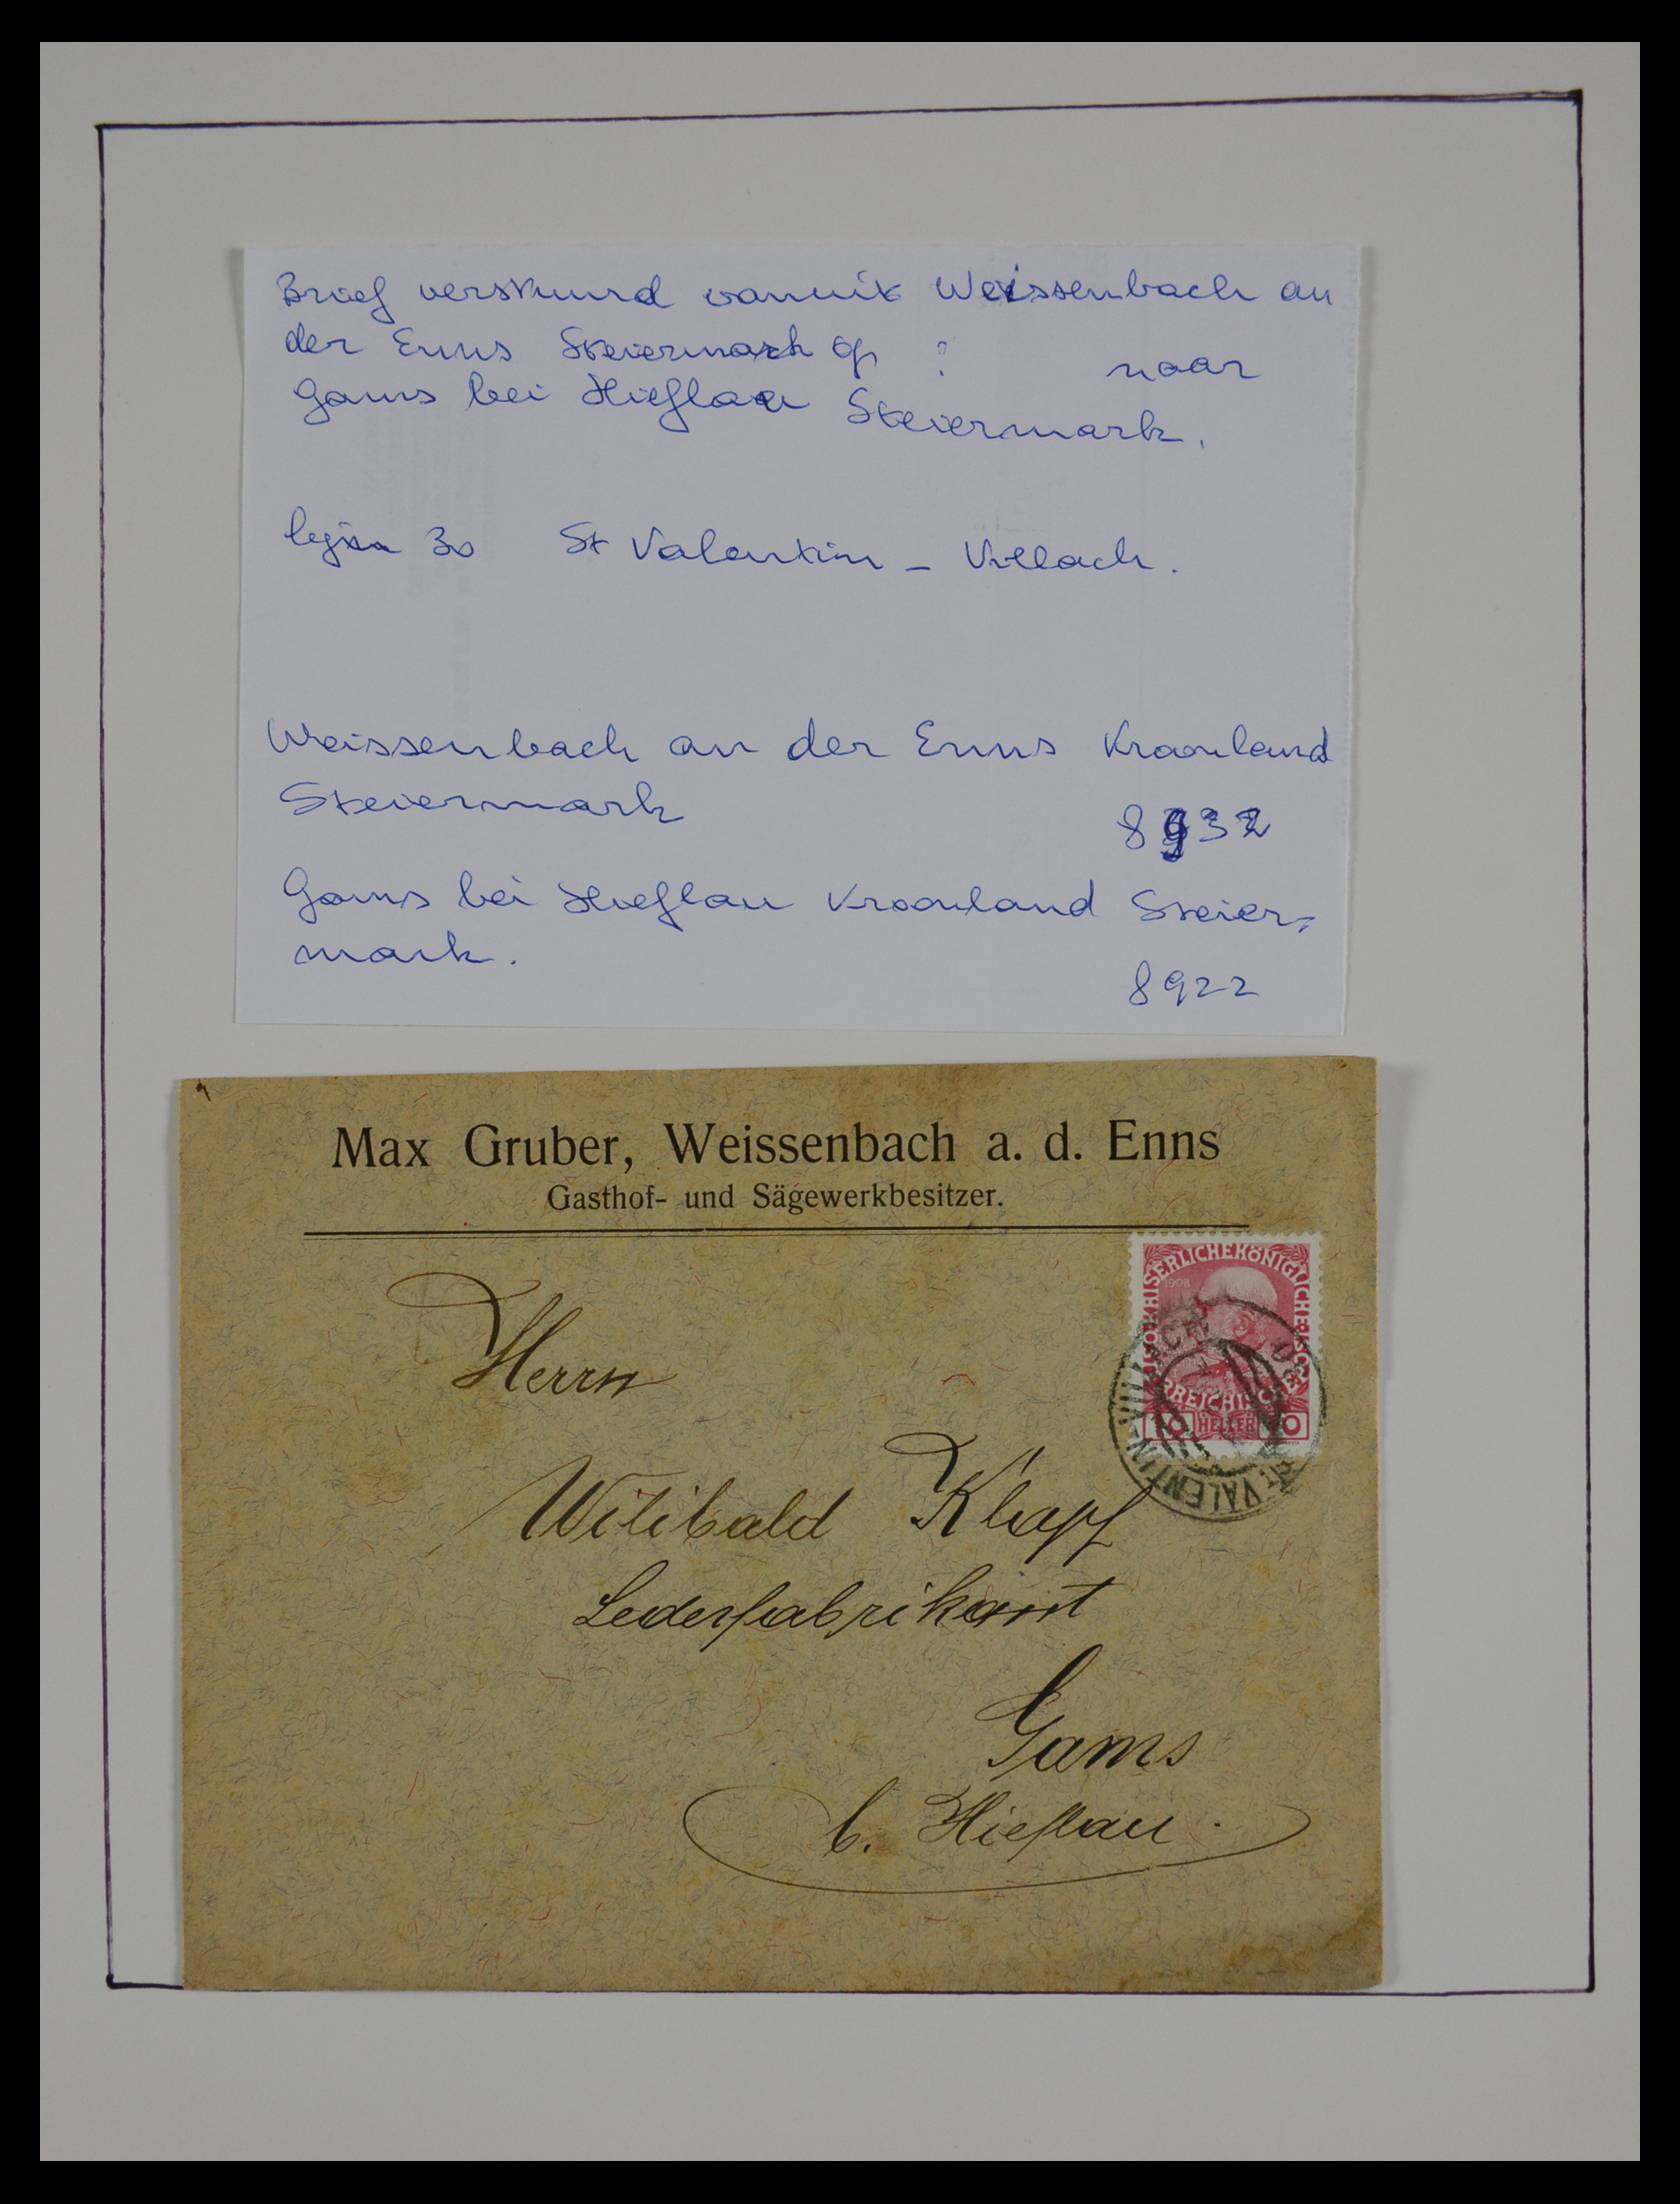 Brief verstuurd vanuit Weissenbach an
der Enns Steiermark op ? naar
Gams bei Hieflau Steiermark.
lijn 30 St Valentin – Villach.
Weissenbach an der Enns Kroonland
Steiermark
8932
Gams bei Hieflau Kroonland Steier=
mark.
8922
Max Gruber, Weissenbach a. d. Enns
Gasthof- und Sägewerkbesitzer.
KAISERLICHE KÖNIGLICHE ÖSTERREICHISCHE
1908
10 HELLER 10
ST. VALENTIN-VILLACH
Herrn
Wilibald Klapf
Lederfabrikant
Gams
b. Hieflau.